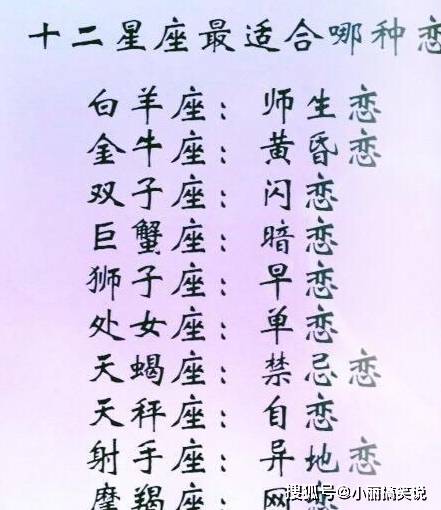 十二星座最适合哪种恋
白羊座：师生恋
金牛座：黄昏恋
双子座：闪恋
巨蟹座：暗恋
狮子座：早恋
处女座：单恋
天蝎座：禁忌恋
天秤座：自恋
射手座：异地恋
摩羯座：网恋
搜狐号@小丽搞笑说